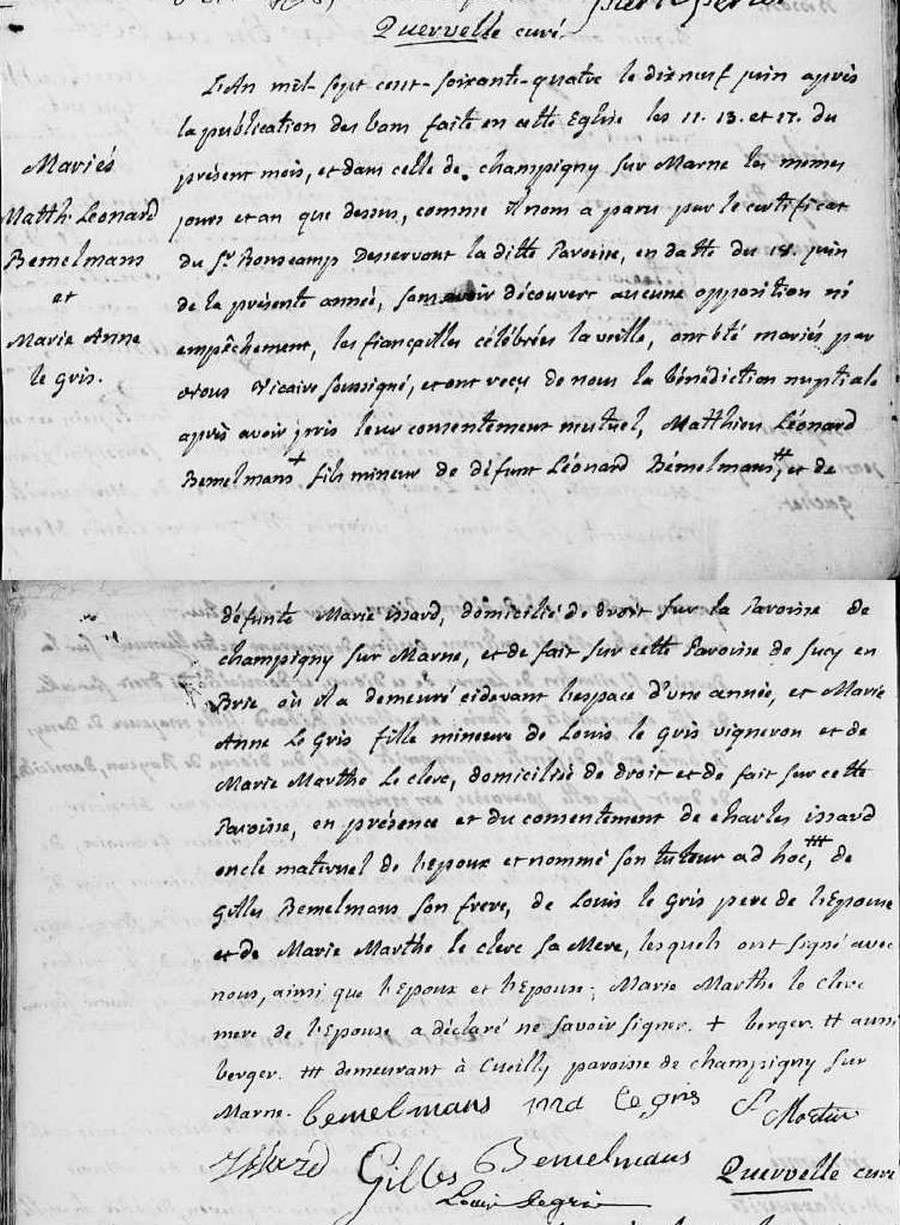 Quervelle curé.
L'An mil-sept cent-soixante-quatre le dixneuf juin après
la publication des bans faite en cette Eglise les 11. 13. et 17. du
présent mois, et dans celle de champigny sur Marne les memes
jours et an que dessus, comme il nous a paru par le certificat
du Sr. Bonscamp Desservant la ditte Paroisse, en datte du 18. juin
de la présente année, sans avoir découvert aucune opposition ni
empêchement, les fiançailles célébrées la veille, ont été mariés par
nous vicaire soussigné, et ont reçu de nous la bénédiction nuptiale
après avoir pris leur consentement mutuel, Matthieu Léonard
Bemelmans + fils mineur de défunt Léonard Bémelmans ++, et de
Mariés
Matth. Léonard
Bemelmans
et
Marie Anne
le gris.
défunte Marie issard, domicilié de droit sur la Paroisse de
champigny sur Marne, et de fait sur cette Paroisse de Sucy en
Brie où il a demeuré cidevant l'espace d'une année, et Marie
Anne Le Gris fille mineure de Louis le gris vigneron et de
Marie Marthe Le clerc, domiciliée de droit et de fait sur cette
Paroisse, en présence et du consentement de charles issard
oncle maternel de l'epoux et nommé son tuteur ad hoc, +++ de
Gilles Bemelmans son frere, de Louis le gris pere de l'Epouse
et de Marie Marthe le clerc sa Mere, lesquels ont signé avec
nous, ainsi que l'Epoux et l'Epouse; Marie Marthe le clerc
mere de l'Epouse a déclaré ne savoir signer. + berger. ++ aussi
berger. +++ demeurant à Cueilly paroisse de champigny sur
Marne. bemelmans ma Le gris
Gilles Bemelmans Quervelle curé
Louis legris